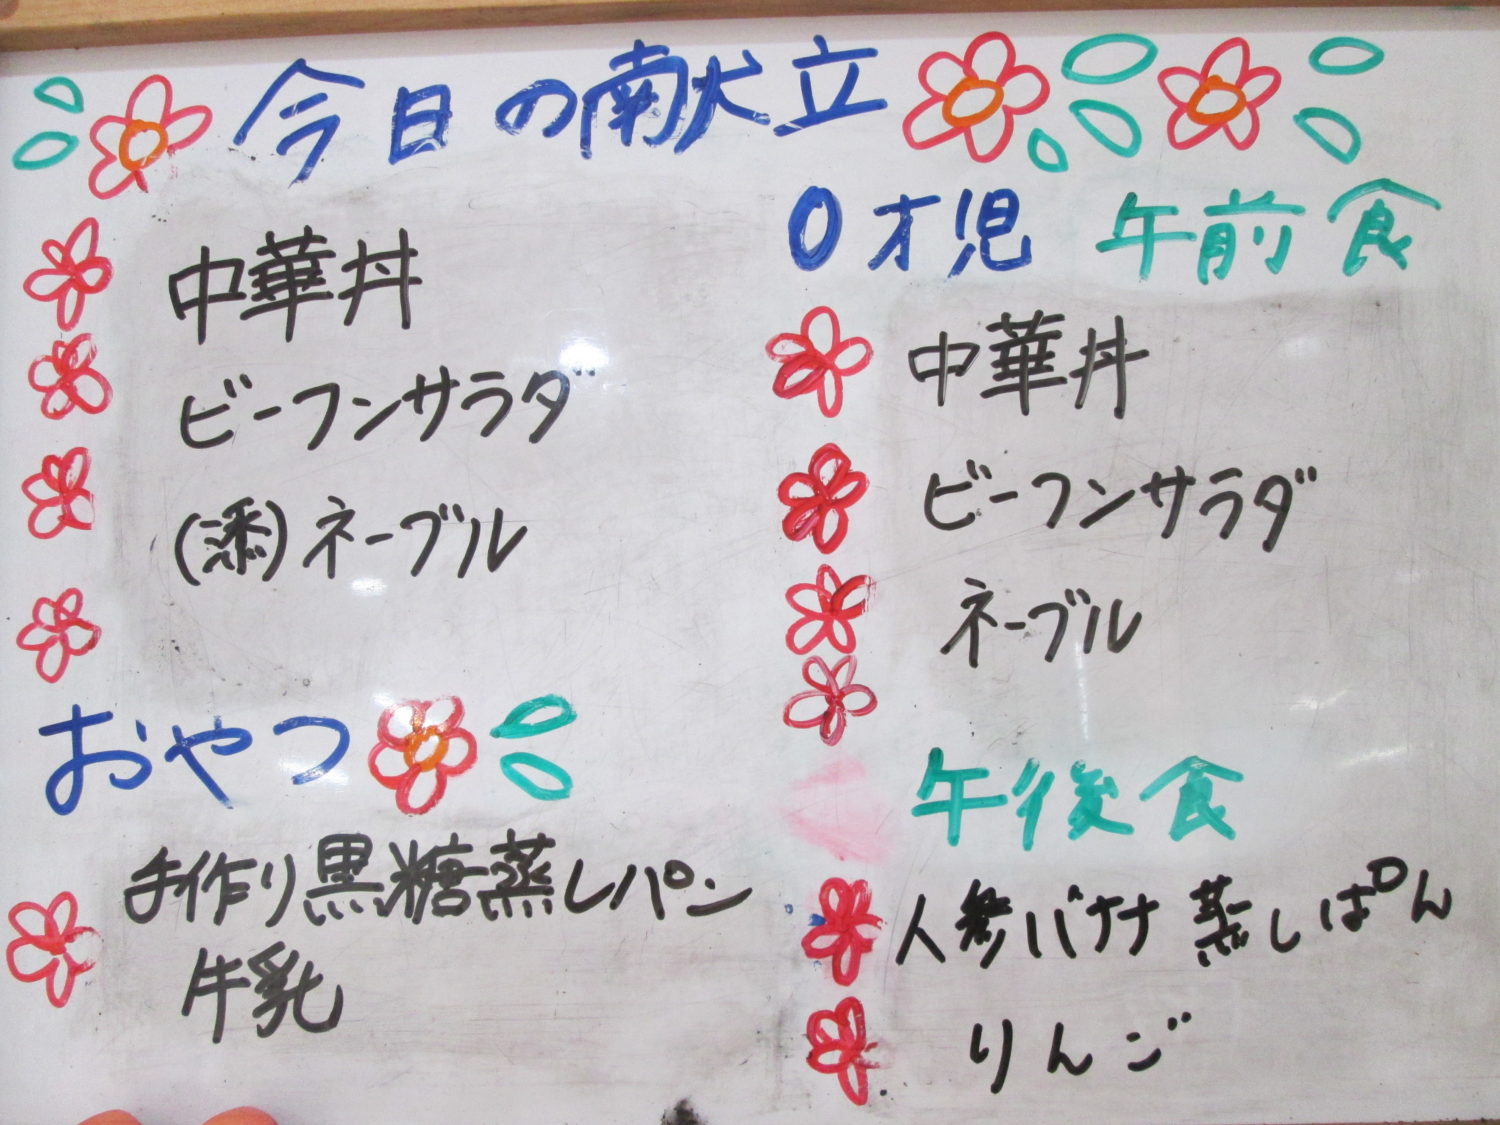 今日の献立
中華丼
ビーフンサラダ
(添)ネーブル
おやつ
手作り黒糖蒸しパン
牛乳
0才児 午前食
中華丼
ビーフンサラダ
ネーブル
午後食
人参バナナ蒸しぱん
りんご